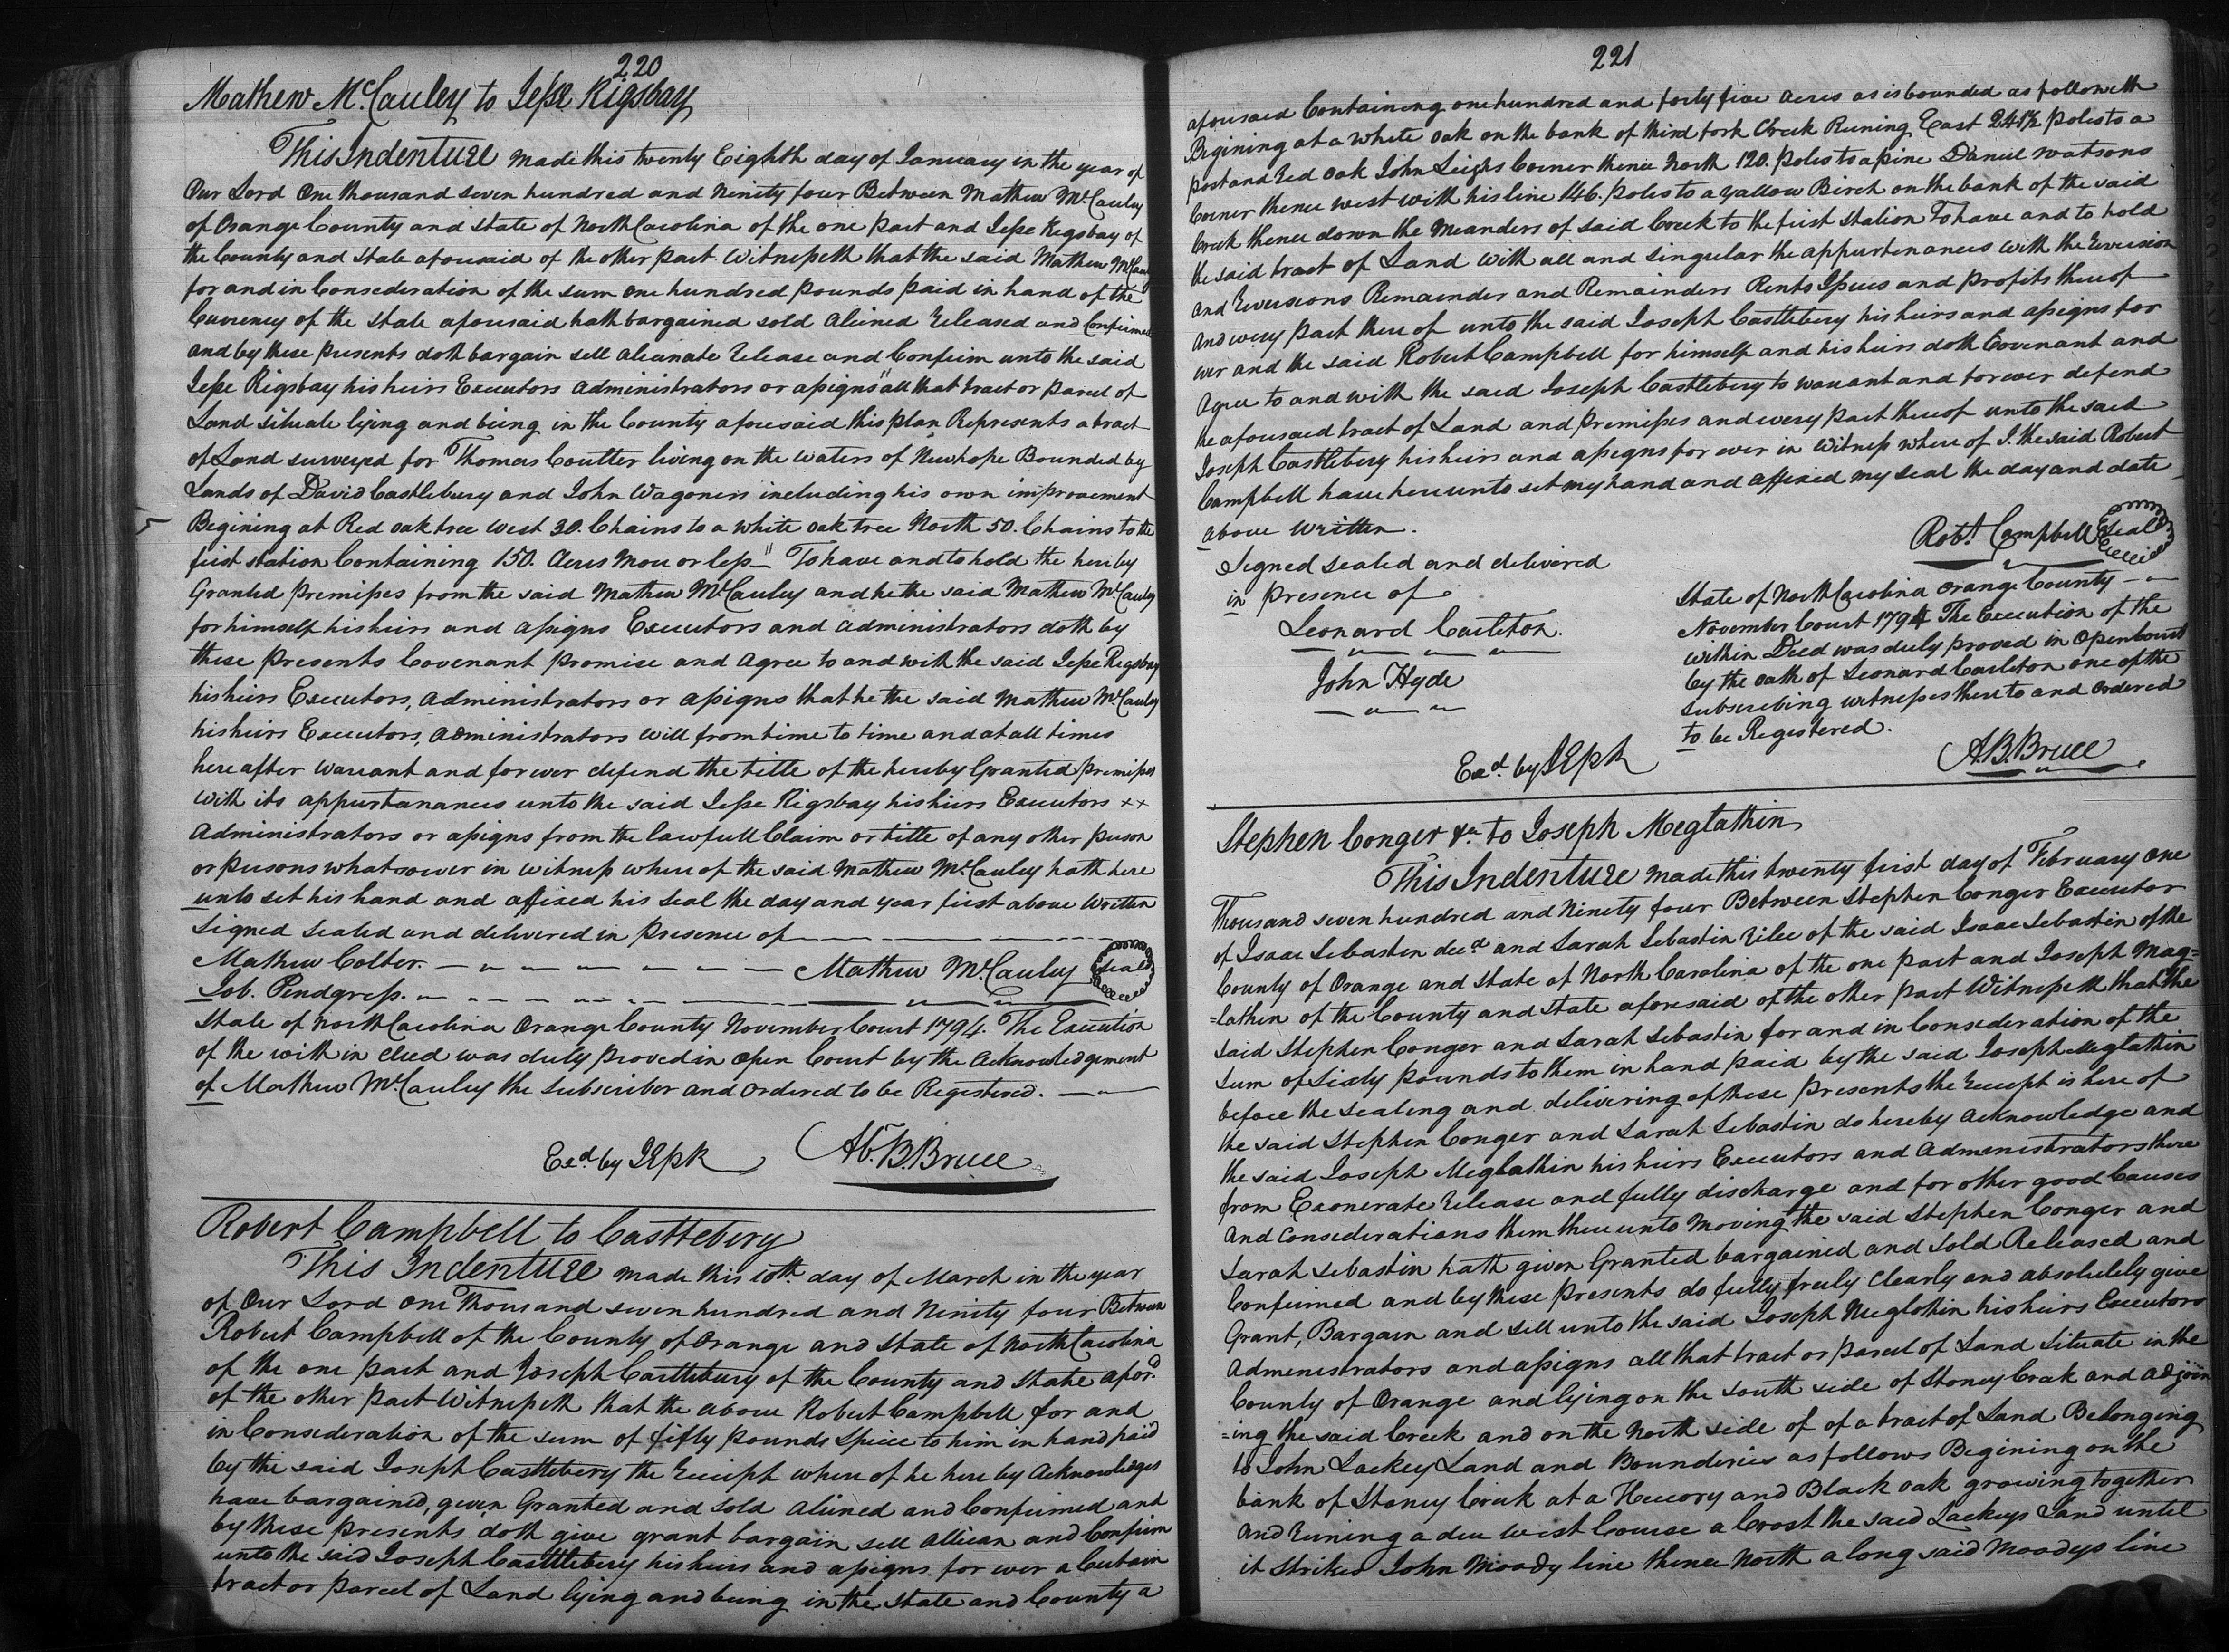 220
Mathew McCauley to Jesse Rigsbay
This Indenture made this twenty Eighth day of January in the year of
Our Lord One thousand seven hundred and Ninity four Between Mathew McCauley
of Orange County and State of North Carolina of the one part and Jesse Rigsbay of
the County and State aforesaid of the other part Witnesseth that the said Mathew McCauley
for and in Consideration of the sum one hundred pounds paid in hand of the
Currency of the State aforesaid hath bargained sold aliened Released and Confirmed
and by these presents doth bargain sell alienate Release and Confirm unto the said
Jesse Rigsbay his heirs Executors administrators or assigns "all that tract or parcel of
Land situate lying and being in the County aforesaid this plan Represents a tract
of Land surveyed for Thomas Coulter living on the waters of Newhope Bounded by
Lands of David Castlebury and John Wagoners including his own improvement
Begining at Red oak tree West 30. Chains to a white oak tree North 50. Chains to the
first station Containing 150. Acres more or less" To have and to hold the hereby
Granted premisses from the said Mathew McCauley and he the said Mathew McCauley
for himself his heirs and assigns Executors and administrators doth by
these presents Covenant promise and agree to and with the said Jesse Rigsbay
his heirs Executors, administrators or assigns that he the said Mathew McCauley
his heirs Executors, administrators will from time to time and at all times
here after warrant and forever defend the title of the hereby Granted premisses
with its appurtanances unto the said Jesse Rigsbay his heirs Executors xx
Administrators or assigns from the lawfull Claim or title of any other person
or persons whatsoever in witness where of the said Mathew McCauley hath here
unto set his hand and affixed his seal the day and year first above Written
Signed Sealed and delivered in presence of
Mathew Colter. Mathew McCauley Seal
Job. Pendgress.
State of North Carolina Orange County November Court 1794. The Execution
of the with in deed was duly proved in open Court by the Acknowledgement
of Mathew McCauley the subscriber and ordered to be Registered.
Exd. by A. B. Bruce
Robert Campbell to Casttebery
This Indenture made this 10th day of March in the year
of Our Lord one Thousand seven hundred and Ninity four Between
Robert Campbell of the County of Orange and State of North Carolina
of the one part and Joseph Casttebury of the County and State afor.d
of the other part Witnesseth that the above Robert Campbell for and
in Consideration of the sum of fifty pounds Speice to him in hand paid
by the said Joseph Casttebery the Receipt where of he here by Acknowledges
have bargained, given Granted and sold aliened and Confirmed and
by these presents doth give grant bargain sell allien and Confirm
unto the said Joseph Castttlebery his heirs and assigns for ever a Certain
tract or parcel of Land lying and being in the State and County a
221
aforesaid Containing one hundred and forty five acres as is bounded as followeth
Begining at a White oak on the bank of third fork Creek Runing East 241½ poles to a
post and Red oak John Leighs Corner thence North 120. poles to a pine Daniel Watsons
Corner thence west with his line 146. poles to a yallow Birch on the bank of the said
Creek thence down the meanders of said Creek to the first station To have and to hold
the said tract of Land with all and singular the appurtenances with the Reversion
and Reversions Remainder and Remainders Rents Issues and profits thereof
and every part there of unto the said Joseph Casttlebery his heirs and assigns for
ever and the said Robert Campbell for himself and his heirs doth Covenant and
agree to and with the said Joseph Casttlebery to warrant and forever defend
he aforesaid tract of Land and premisses and every part thereof unto the said
Joseph Casttlebery his heirs and assigns for ever in Witness where of I. the said Robert
Campbell have hereunto set my hand and affixed my seal the day and date
above written.
Robt. Campbell Seal
Signed sealed and delivered
in presence of
Leonard Carleton.
John Hyde
State of North Carolina Orange County
November Court 1794 The Execution of the
within Deed was duly proved in open Court
by the oath of Leonard Carleton one of the
Subscribing witnesses thereto and ordered
to be Registered.
Exd. by A. B. Bruce
Stephen Conger &c. to Joseph Meglathin
This Indenture made this twenty first day of February one
Thousand seven hundred and Ninety four Between Stephen Conger Executor
of Isaac Sebastin decd and Sarah Sebastin Rilec of the said Isaac Sebastin of the
County of Orange and State of North Carolina of the one part and Joseph Mag=
=lathin of the County and State aforesaid of the other part Witnesseth that the
said Stephen Conger and Sarah Sebastin for and in Consideration of the
sum of Sixty pounds to them in hand paid by the said Joseph Meglathin
before the sealing and delivering of these presents the Receipt is here of
the said Stephen Conger and Sarah Sebastin do hereby acknowledge and
the said Joseph Meglathin his heirs Executors and administrators there
from Exonerate Release and fully discharge and for other good Causes
and considerations them there unto moving the said Stephen Conger and
Sarah Sebastin hath given Granted bargained and sold Released and
Confirmed and by these presents do fully freely clearly and absolutely give
Grant, Bargain and sell unto the said Joseph Meglothin his heirs Executors
administrators and assigns all that tract or parcel of Land Situate in the
County of Orange and lying on the south side of Stoney Creek and adjoin
=ing the said Creek and on the North side of of a tract of Land Belonging
to John Lackey Land and Bounderies as follows Begining on the
bank of Stoney Creek at a Heccory and Black oak growing together
and Runing a due West Course a Crost the said Lackeys Land until
it Strikes John Moody line thence North along said Moodys line